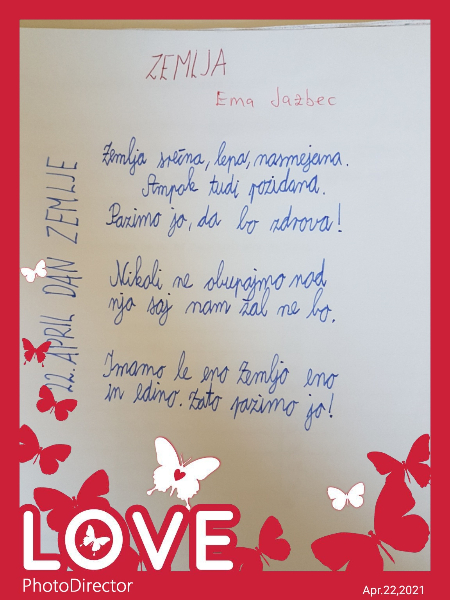 ZEMLJA
Ema Jazbec
22. APRIL DAN ZEMLJE
Zemlja srečna, lepa, nasmejana.
Ampak tudi pozidana.
Pazimo jo, da bo zdrova!
Nikoli ne obupajmo nad
njo saj nam žal ne bo.
Imamo le eno Zemljo eno
in edino. Zato pazimo jo!
LOVE
PhotoDirector
Apr.22,2021